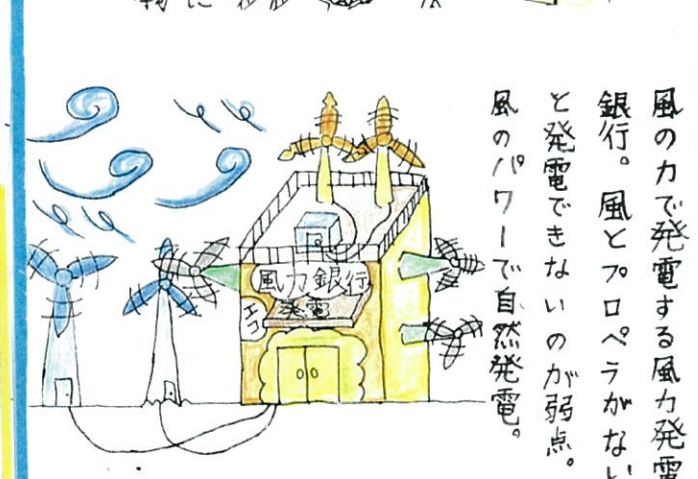 風の力で発電する風力発電
銀行。風とプロペラがない
と発電できないのが弱点。
風のパワーで自然発電。
風力銀行
発電
エコ